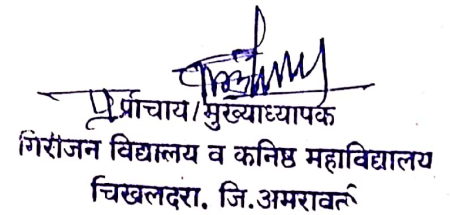 प्राचार्य/मुख्याध्यापक
गिरीजन विद्यालय व कनिष्ठ महाविद्यालय
चिखलदरा. जि.अमरावती